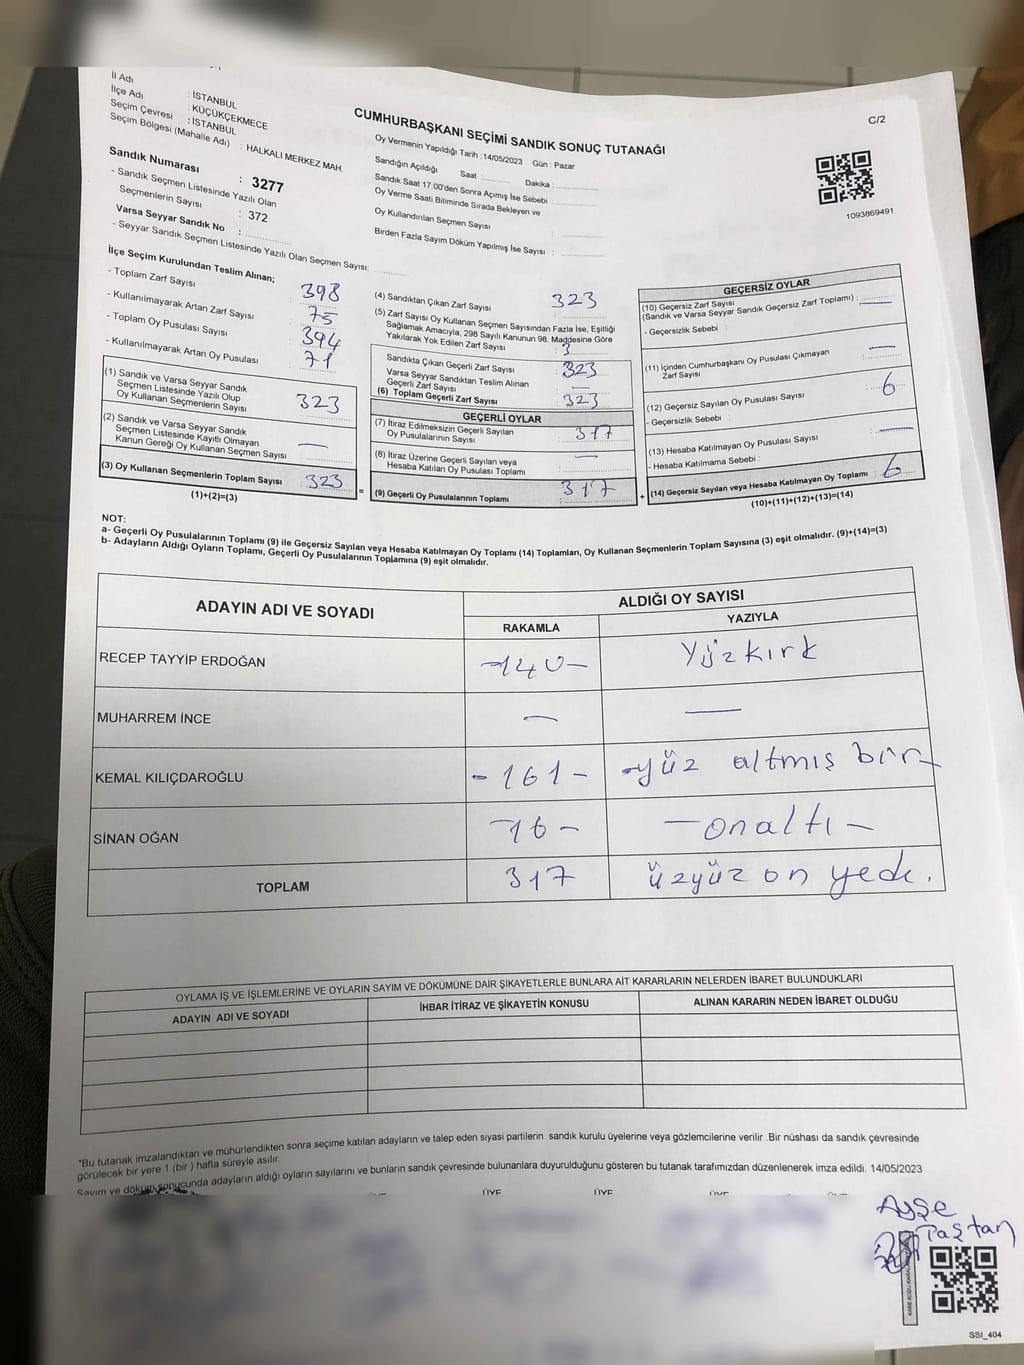 İl Adı : İSTANBUL
İlçe Adı : KÜÇÜKÇEKMECE
Seçim Çevresi : İSTANBUL
Seçim Bölgesi (Mahalle Adı) : HALKALI MERKEZ MAH.
Sandık Numarası : 3277
- Sandık Seçmen Listesinde Yazılı Olan
Seçmenlerin Sayısı : 372
Varsa Seyyar Sandık No :
- Seyyar Sandık Seçmen Listesinde Yazılı Olan Seçmen Sayısı:
CUMHURBAŞKANI SEÇİMİ SANDIK SONUÇ TUTANAĞI
Oy Vermenin Yapıldığı Tarih :14/05/2023 Gün : Pazar
Sandığın Açıldığı Saat : Dakika :
Sandık Saat 17.00'den Sonra Açımış İse Sebebi :
Oy Verme Saati Bitiminde Sırada Bekleyen ve
Oy Kullandırılan Seçmen Sayısı :
Birden Fazla Sayım Döküm Yapılmış İse Sayısı :
C/2
1093869491
İlçe Seçim Kurulundan Teslim Alınan;
- Toplam Zarf Sayısı : 398
- Kullanılmayarak Artan Zarf Sayısı : 75
- Toplam Oy Pusulası Sayısı : 394
- Kullanılmayarak Artan Oy Pusulası : 71
(1) Sandık ve Varsa Seyyar Sandık
Seçmen Listesinde Yazılı Olup
Oy Kullanan Seçmenlerin Sayısı : 323
(2) Sandık ve Varsa Seyyar Sandık
Seçmen Listesinde Kayıtlı Olmayan
Kanun Gereği Oy Kullanan Seçmen Sayısı : —
(3) Oy Kullanan Seçmenlerin Toplam Sayısı : 323
(1)+(2)=(3)
(4) Sandıktan Çıkan Zarf Sayısı : 323
(5) Zarf Sayısı Oy Kullanan Seçmen Sayısından Fazla İse, Eşitliği
Sağlamak Amacıyla, 298 Sayılı Kanunun 98. Maddesine Göre
Yakılarak Yok Edilen Zarf Sayısı : 3
Sandıkta Çıkan Geçerli Zarf Sayısı : 323
Varsa Seyyar Sandıktan Teslim Alınan
Geçerli Zarf Sayısı : —
(6) Toplam Geçerli Zarf Sayısı : 323
GEÇERLİ OYLAR
(7) İtiraz Edilmeksizin Geçerli Sayılan
Oy Pusulalarının Sayısı : 317
(8) İtiraz Üzerine Geçerli Sayılan veya
Hesaba Katılan Oy Pusulası Toplamı : —
= (9) Geçerli Oy Pusulalarının Toplamı : 317
GEÇERSİZ OYLAR
(10) Geçersiz Zarf Sayısı
(Sandık ve Varsa Seyyar Sandık Geçersiz Zarf Toplamı) : —
- Geçersizlik Sebebi :
(11) İçinden Cumhurbaşkanı Oy Pusulası Çıkmayan
Zarf Sayısı : —
(12) Geçersiz Sayılan Oy Pusulası Sayısı : 6
- Geçersizlik Sebebi :
(13) Hesaba Katılmayan Oy Pusulası Sayısı : —
- Hesaba Katılmama Sebebi :
+ (14) Geçersiz Sayılan veya Hesaba Katılmayan Oy Toplamı : 6
(10)+(11)+(12)+(13)=(14)
NOT:
a- Geçerli Oy Pusulalarının Toplamı (9) ile Geçersiz Sayılan veya Hesaba Katılmayan Oy Toplamı (14) Toplamları, Oy Kullanan Seçmenlerin Toplam Sayısına (3) eşit olmalıdır. (9)+(14)=(3)
b- Adayların Aldığı Oyların Toplamı, Geçerli Oy Pusulalarının Toplamına (9) eşit olmalıdır.
ADAYIN ADI VE SOYADI ALDIĞI OY SAYISI
RAKAMLA YAZIYLA
RECEP TAYYİP ERDOĞAN -140- Yüzkırk
MUHARREM İNCE — —
KEMAL KILIÇDAROĞLU -161- -yüz altmış bir-
SİNAN OĞAN -16- -onaltı-
TOPLAM 317 üzyüz on yedi.
OYLAMA İŞ VE İŞLEMLERİNE VE OYLARIN SAYIM VE DÖKÜMÜNE DAİR ŞİKAYETLERLE BUNLARA AİT KARARLARIN NELERDEN İBARET BULUNDUKLARI
ADAYIN ADI VE SOYADI İHBAR İTİRAZ VE ŞİKAYETİN KONUSU ALINAN KARARIN NEDEN İBARET OLDUĞU
*Bu tutanak imzalandıktan ve mühürlendikten sonra seçime katılan adayların ve talep eden siyasi partilerin sandık kurulu üyelerine veya gözlemcilerine verilir .Bir nüshası da sandık çevresinde
görülecek bir yere 1 (bir ) hafta süreyle asılır.
Sayım ve döküm sonucunda adayların aldığı oyların sayılarını ve bunların sandık çevresinde bulunanlara duyurulduğunu gösteren bu tutanak tarafımızdan düzenlenerek imza edildi. 14/05/2023
ÜYE ÜYE ÜYE ÜYE ÜYE
Ayşe
Taştan
SSI_404